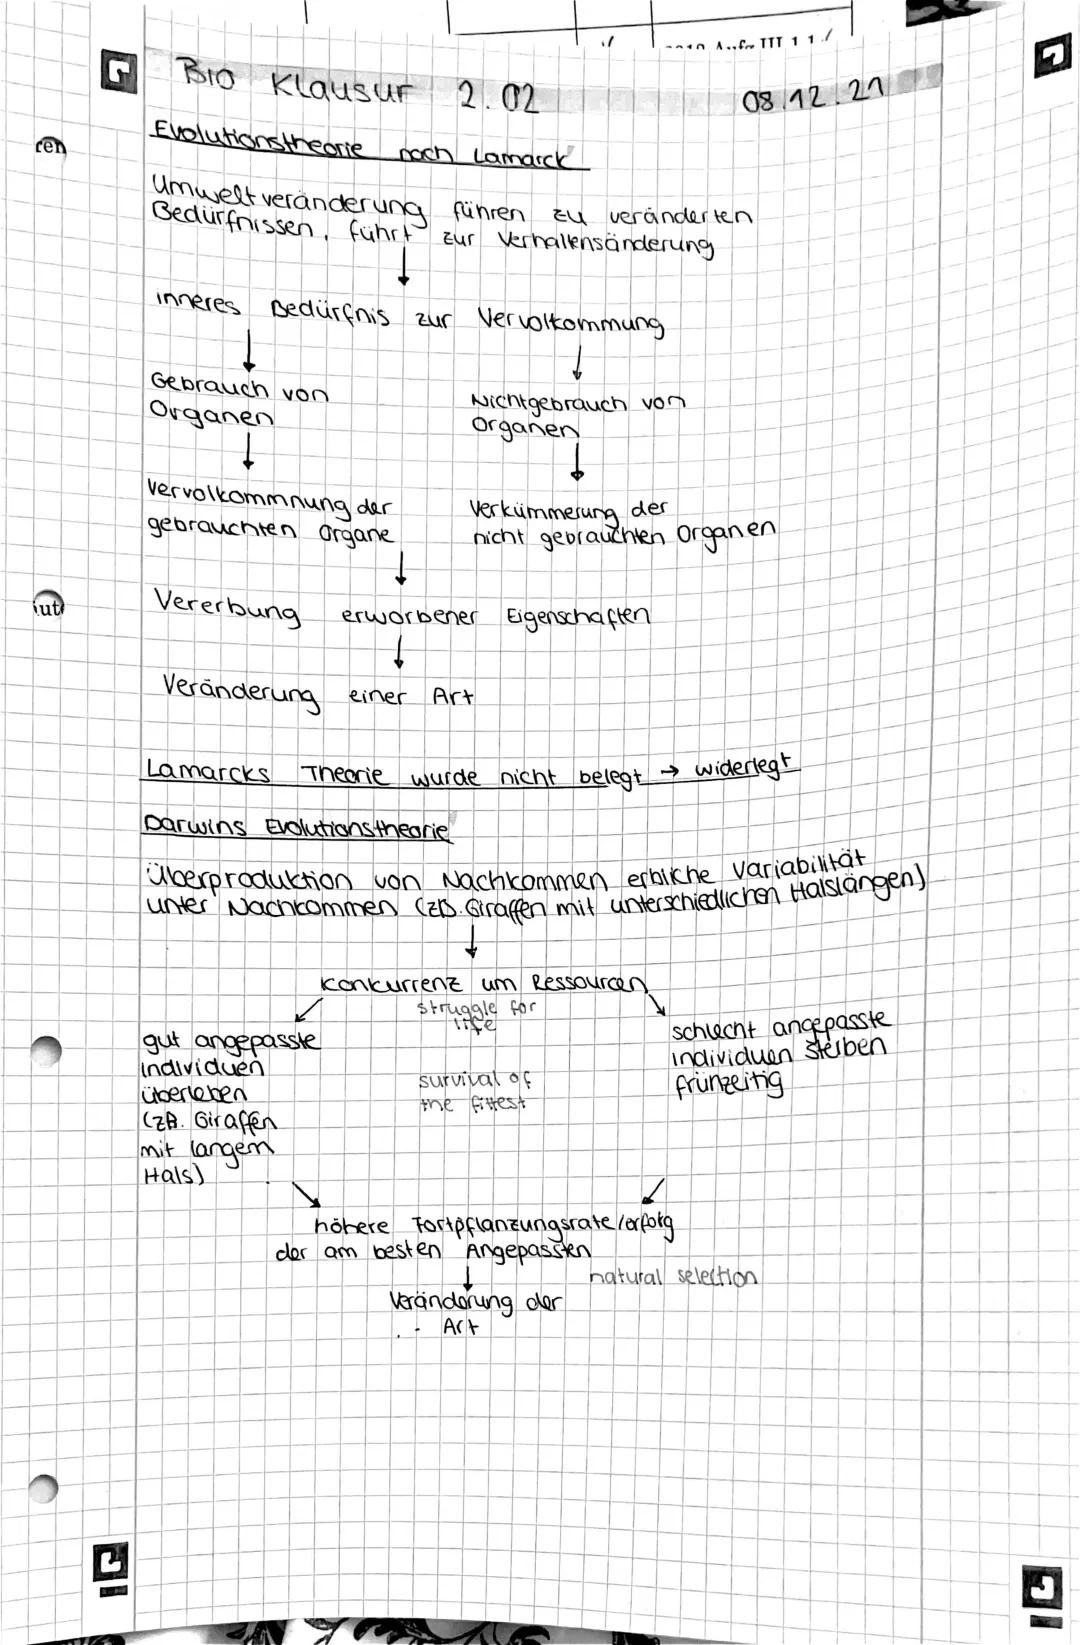 Bio Klausur 2.02 08.12.21
Evolutionstheorie nach Lamarck
ren
Umweltveränderung führen zu veränderten
Bedürfnissen, führt zur Verhaltensänderung
↓
inneres Bedürfnis zur Vervolkommung
↓ ↓
Gebrauch von
Organen
Nichtgebrauch von
Organen
↓ ↓
Vervolkommnung der
gebrauchten Organe
Verkümmerung der
nicht gebrauchten Organen
↓
Vererbung erworbener Eigenschaften
iut
↓
Veränderung einer Art
Lamarcks Theorie wurde nicht belegt → widerlegt
Darwins Evolutionstheorie
Überproduktion von Nachkommen erbliche Variabilität
unter Nachkommen (zB. Giraffen mit unterschiedlichen Halslängen)
↓
Konkurrenz um Ressourcen
struggle for
life
gut angepasste
individuen
überleben
(zB. Giraffen
mit langem
Hals)
survival of
the fittest
schlecht angepasste
individuen sterben
frühzeitig
höhere Fortpflanzungsrate/erfolg
der am besten Angepassten
natural selection
↓
Veränderung der
Art